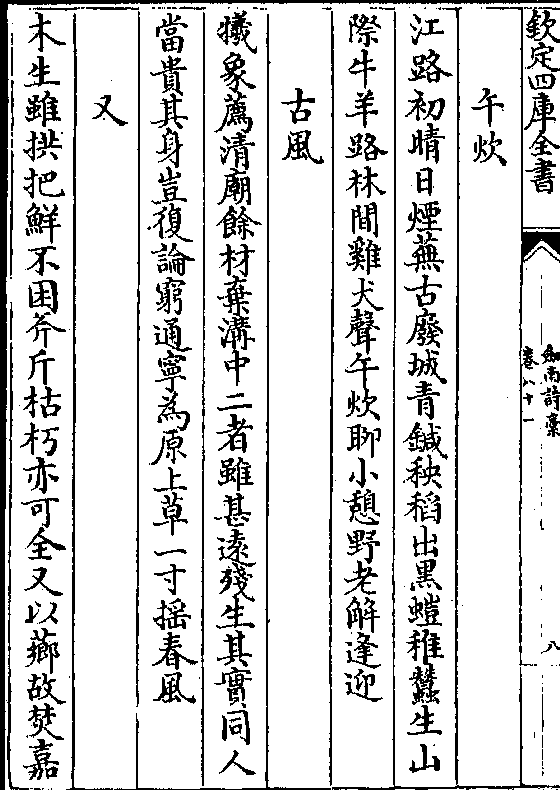 欽定四庫全書
劍南詩稾
卷八十一
八
午炊
江路初晴日煙蕪古廢城青鍼秧稻出黑螘稚蠶生山
際牛羊路林間雞犬聲午炊聊小憩野老解逢迎
古風
犧象薦清廟餘材棄溝中二者雖甚遠殘生其實同人
當貴其身豈復論窮通寧為原上草一寸摇春風
又
木生雖拱把鮮不困斧斤枯朽亦可全又以薌故焚嘉